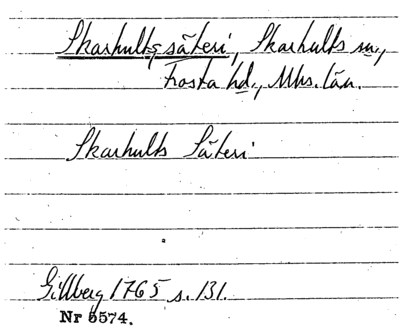 Skarhults säteri, Skarhults sn,
Frosta hd., Mhs. län.
Skarhults Säteri
Gillberg 1765 s. 131.
Nr 5574.